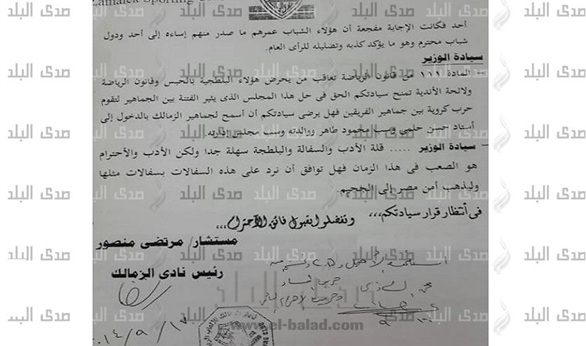 Zamalek Sporting
أحد فكانت الإجابة مفجعة أن هؤلاء الشباب عمرهم ما صدر منهم إساءة إلى أحد ودول
شباب محترم وهو ما يؤكد كذبه وتضليله للرأى العام.
سيادة الوزير
المادة من قانون الرياضة تعاقب من يحرض هؤلاء البلطجية بالحبس وقانون الرياضة
ولائحة الأندية تمنح سيادتكم الحق فى حل هذا المجلس الذى يثير الفتنة بين الجماهير لتقوم
حرب كروية بين جماهير الفريقين فهل يرضى سيادتكم أن أسمح لجماهير الزمالك بالدخول إلى
أستاد حسن حلمى وسب محمود طاهر ووالدته وسب مجلس إدارته
سيادة الوزير ..... قلة الأدب والسفالة والبلطجة سهلة جدا ولكن الأدب والأحترام
هو الصعب فى هذا الزمان فهل توافق أن نرد على هذه السفالات بسفالات مثلها
وليذهب أمن مصر إلى الجحيم.
فى أنتظار قرار سيادتكم،،،
وتفضلوا بقبول فائق الأحترام،،،
مستشار/ مرتضى منصور
رئيس نادى الزمالك
٢٠١٤/٩/١٧
صدى البلد
el-balad.com